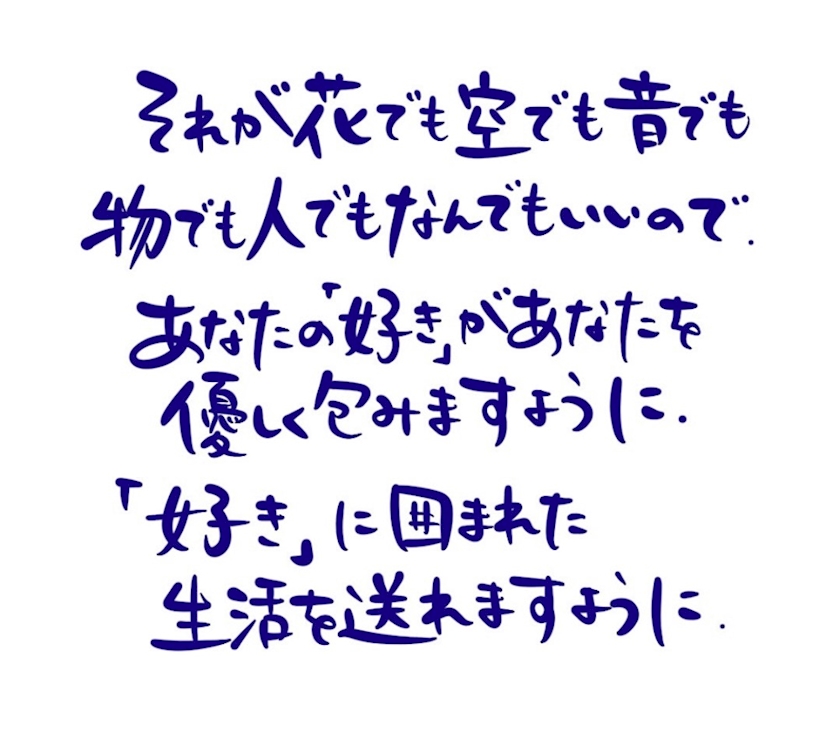 それが花でも空でも音でも
物でも人でもなんでもいいので.
あなたの「好き」があなたを
優しく包みますように.
「好き」に囲まれた
生活を送れますように.